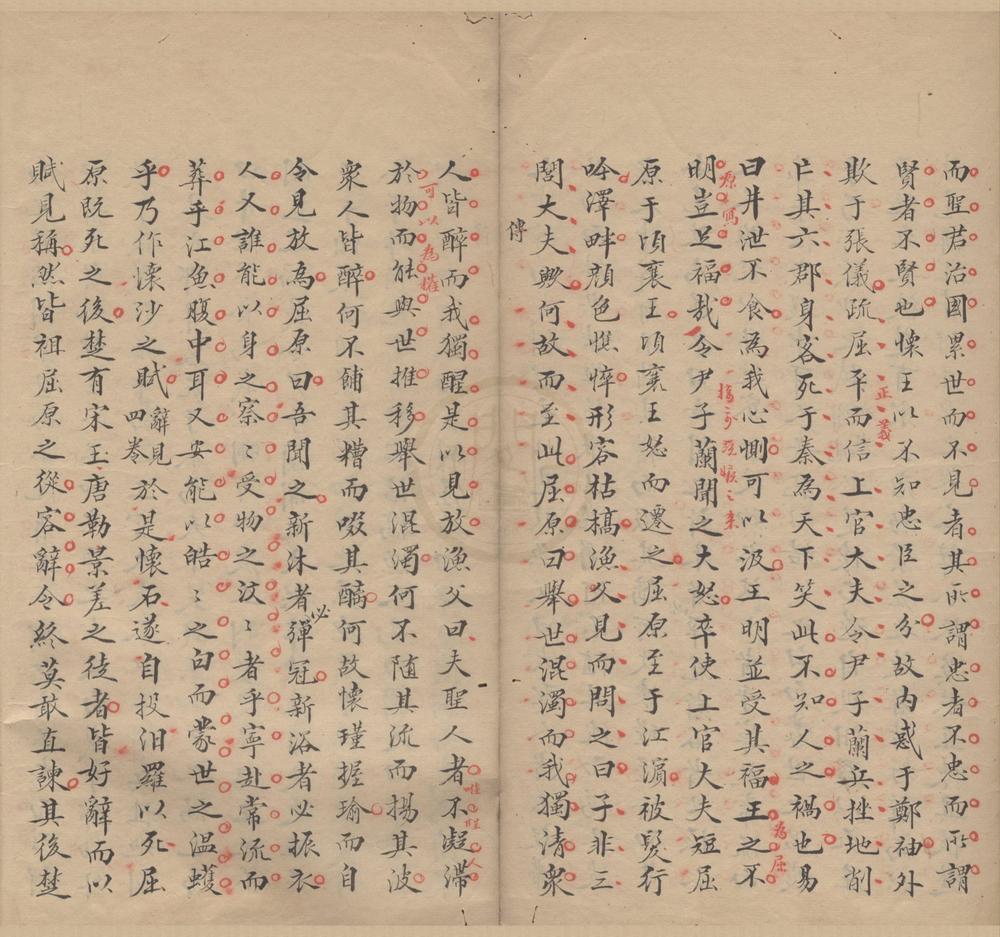 而聖君治國累世而不見者其所謂忠者不忠而所謂
賢者不賢也懷王以不知忠臣之分故內惑于鄭袖外
欺于張儀疏屈平而信上官大夫令尹子蘭兵挫地削
亡其六郡身客死于秦為天下笑此不知人之禍也易
正義
曰井泄不食為我心惻可以汲王明並受其福王之不
為屈
明豈足福哉令尹子蘭聞之大怒卒使上官大夫短屈
原寫
原于頃襄王頃襄王怒而遷之屈原至于江濱被髮行
吟澤畔顏色憔悴形容枯槁漁父見而問之曰子非三
閭大夫歟何故而至此屈原曰舉世混濁而我獨清衆
傳
人皆醉而我獨醒是以見放漁父曰夫聖人者不凝滯
於物而能與世推移舉世混濁何不随其流而揚其波
可以為
衆人皆醉何不餔其糟而啜其醨何故懷瑾握瑜而自
令見放為屈原曰吾聞之新沐者必彈冠新浴者必振衣
人又誰能以身之察〻受物之汶〻者乎寧赴常流而
葬乎江魚腹中耳又安能以皓〻之白而蒙世之温蠖
乎乃作懷沙之賦辭見四卷於是懷石遂自投汨羅以死屈
原既死之後楚有宋玉唐勒景差之徒者皆好辭而以
賦見稱然皆祖屈原之從容辭令終莫敢直諫其後楚